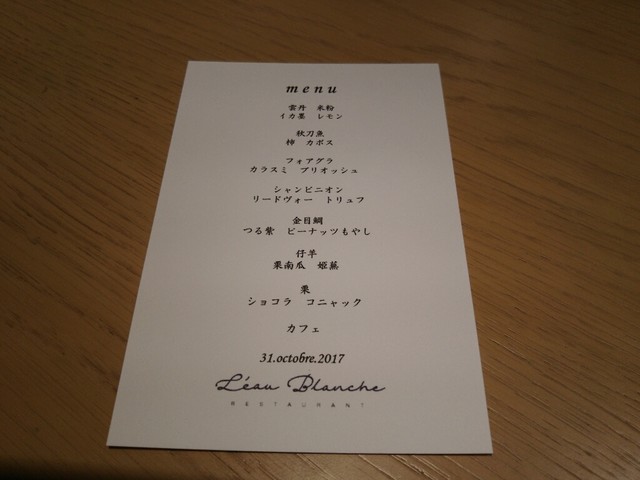 menu
雲丹 米粉
イカ墨 レモン
秋刀魚
柿 カボス
フォアグラ
カラスミ ブリオッシュ
シャンピニオン
リードヴォー トリュフ
金目鯛
つる紫 ピーナッツもやし
仔羊
栗南瓜 姫蕪
栗
ショコラ コニャック
カフェ
31.octobre.2017
L'eau Blanche
RESTAURANT